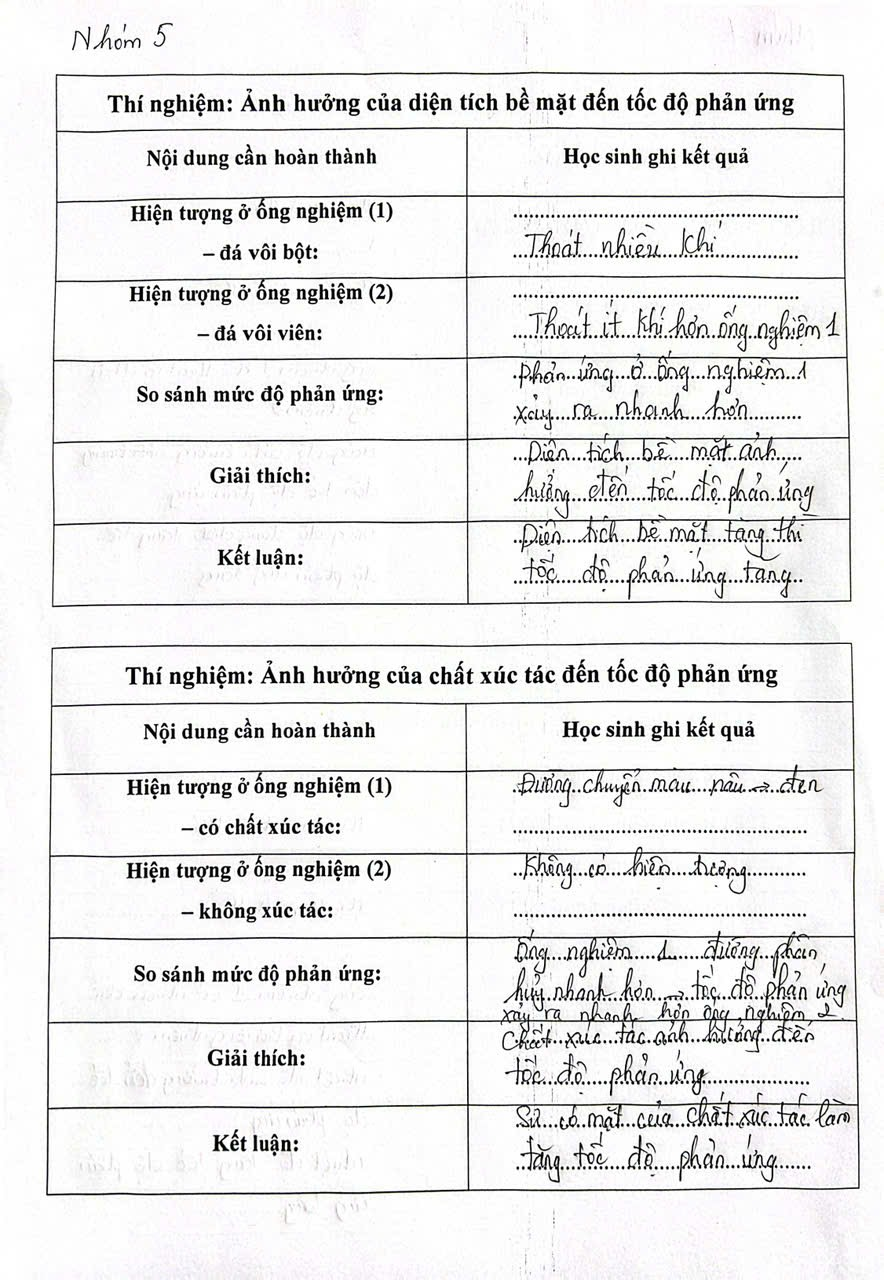 Nhóm 5
Thí nghiệm: Ảnh hưởng của diện tích bề mặt đến tốc độ phản ứng
Nội dung cần hoàn thành
Học sinh ghi kết quả
Hiện tượng ở ống nghiệm (1)
– đá vôi bột:
Thoát nhiều khí
Hiện tượng ở ống nghiệm (2)
– đá vôi viên:
Thoát ít khí hơn ống nghiệm 1
So sánh mức độ phản ứng:
Phản ứng ở ống nghiệm 1
xảy ra nhanh hơn
Giải thích:
Diện tích bề mặt ảnh
hưởng đến tốc độ phản ứng
Kết luận:
Diện tích bề mặt tăng thì
tốc độ phản ứng tăng
Thí nghiệm: Ảnh hưởng của chất xúc tác đến tốc độ phản ứng
Nội dung cần hoàn thành
Học sinh ghi kết quả
Hiện tượng ở ống nghiệm (1)
– có chất xúc tác:
Đường chuyển màu nâu → đen
Hiện tượng ở ống nghiệm (2)
– không xúc tác:
Không có hiện tượng
So sánh mức độ phản ứng:
Ống nghiệm 1 đường phân
hủy nhanh hơn → tốc độ phản ứng
xảy ra nhanh hơn ống nghiệm 2
Giải thích:
Chất xúc tác ảnh hưởng đến
tốc độ phản ứng
Kết luận:
Sự có mặt của chất xúc tác làm
tăng tốc độ phản ứng